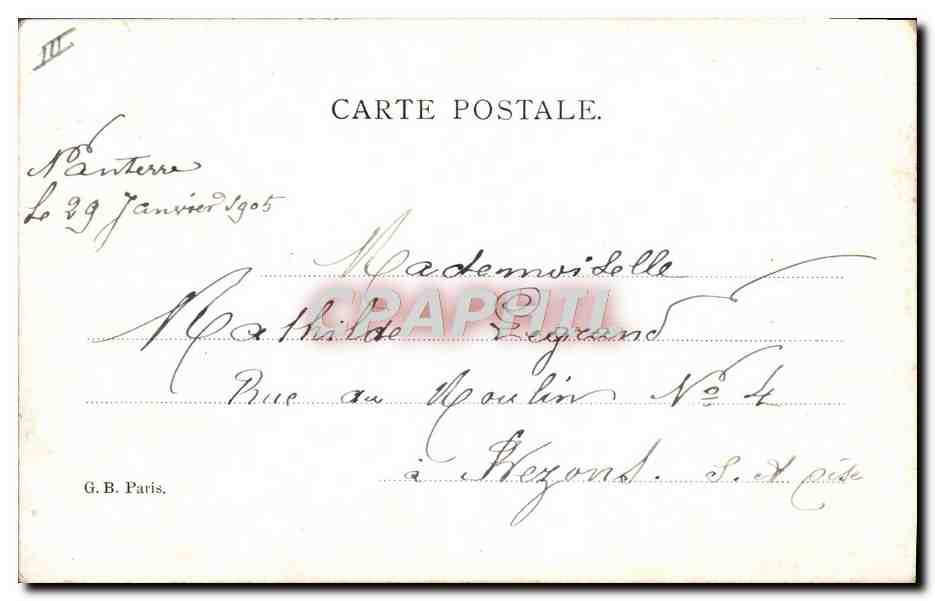 III
CARTE POSTALE.
Nanterre
Le 29 Janvier 1905
Mademoiselle
Mathilde Legrand
CPAPHIL
Rue du Moulin No 4
à Bezons. S. & Oise
G. B. Paris.